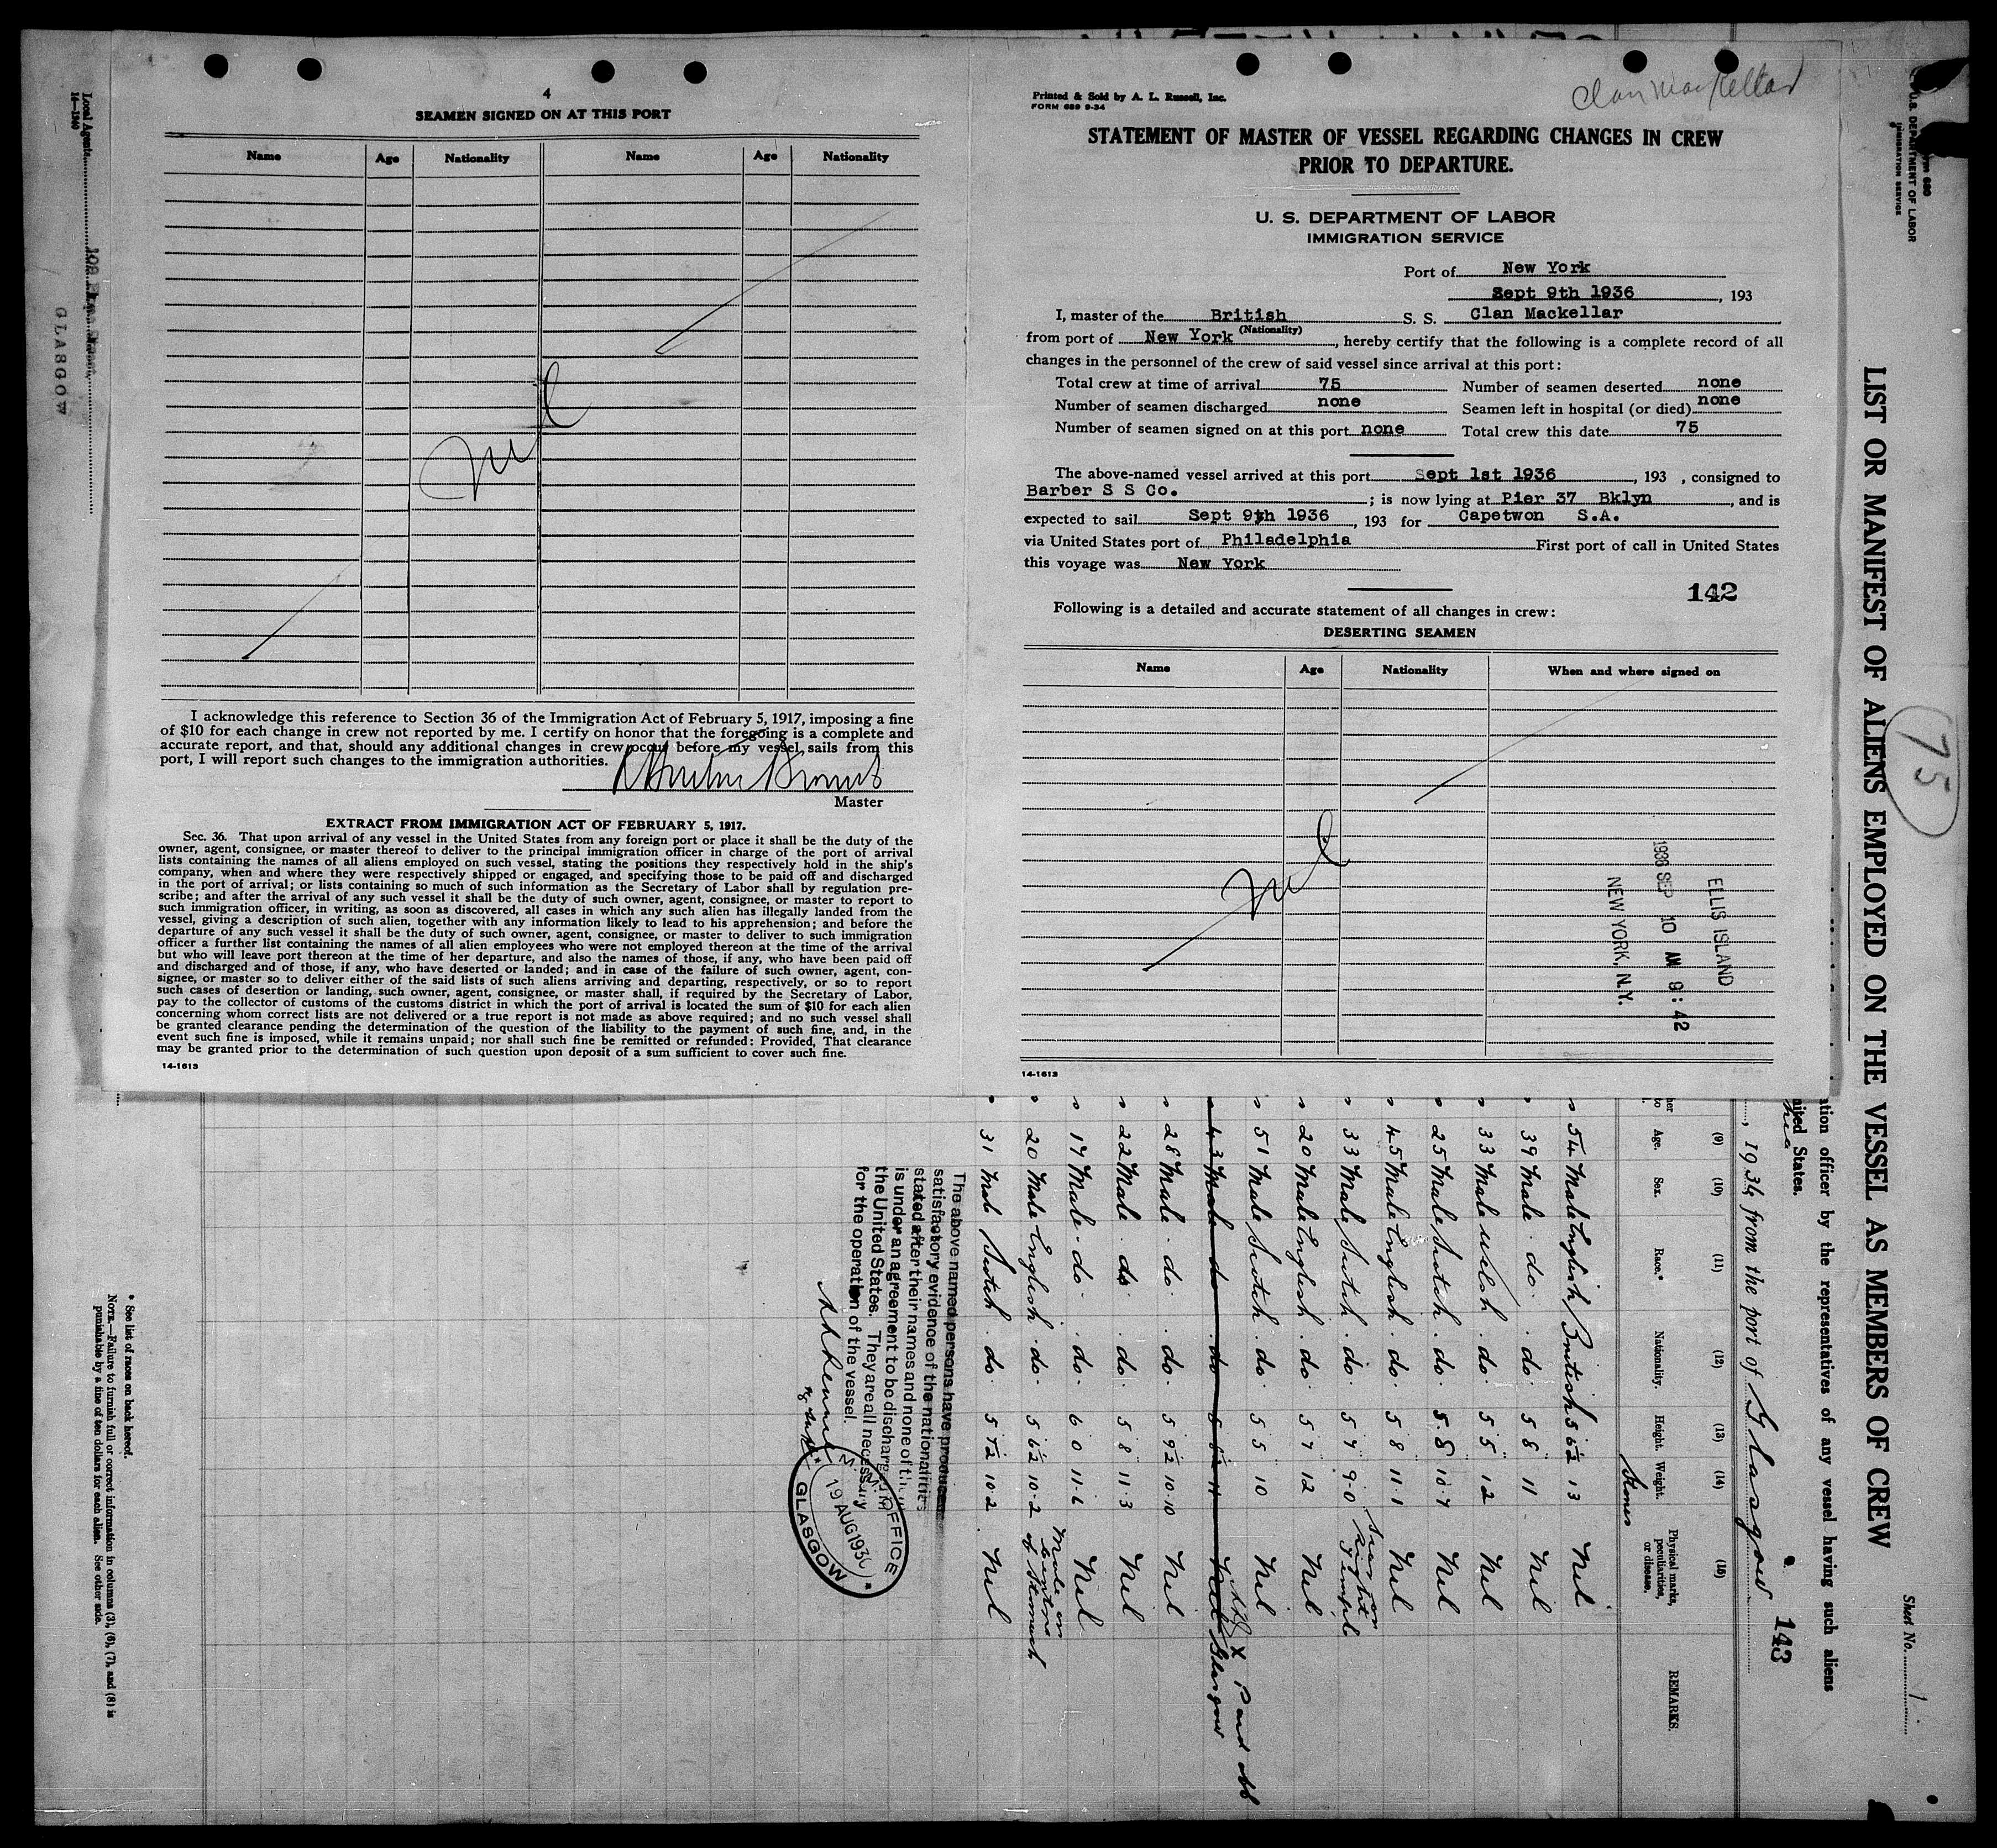 4
SEAMEN SIGNED ON AT THIS PORT
Name Age Nationality Name Age Nationality
Nil
I acknowledge this reference to Section 36 of the Immigration Act of February 5, 1917, imposing a fine
of $10 for each change in crew not reported by me. I certify on honor that the foregoing is a complete and
accurate report, and that, should any additional changes in crew occur before my vessel sails from this
port, I will report such changes to the immigration authorities.
Master
EXTRACT FROM IMMIGRATION ACT OF FEBRUARY 5, 1917.
Sec. 36. That upon arrival of any vessel in the United States from any foreign port or place it shall be the duty of the
owner, agent, consignee, or master thereof to deliver to the principal immigration officer in charge of the port of arrival
lists containing the names of all aliens employed on such vessel, stating the positions they respectively hold in the ship's
company, when and where they were respectively shipped or engaged, and specifying those to be paid off and discharged
in the port of arrival; or lists containing so much of such information as the Secretary of Labor shall by regulation pre-
scribe; and after the arrival of any such vessel it shall be the duty of such owner, agent, consignee, or master to report to
such immigration officer, in writing, as soon as discovered, all cases in which any such alien has illegally landed from the
vessel, giving a description of such alien, together with any information likely to lead to his apprehension; and before the
departure of any such vessel it shall be the duty of such owner, agent, consignee, or master to deliver to such immigration
officer a further list containing the names of all alien employees who were not employed thereon at the time of the arrival
but who will leave port thereon at the time of her departure, and also the names of those, if any, who have been paid off
and discharged and of those, if any, who have deserted or landed; and in case of the failure of such owner, agent, con-
signee, or master so to deliver either of the said lists of such aliens arriving and departing, respectively, or so to report
such cases of desertion or landing, such owner, agent, consignee, or master shall, if required by the Secretary of Labor,
pay to the collector of customs of the customs district in which the port of arrival is located the sum of $10 for each alien
concerning whom correct lists are not delivered or a true report is not made as above required; and no such vessel shall
be granted clearance pending the determination of the question of the liability to the payment of such fine, and, in the
event such fine is imposed, while it remains unpaid; nor shall such fine be remitted or refunded: Provided, That clearance
may be granted prior to the determination of such question upon deposit of a sum sufficient to cover such fine.
14-1613
Clan MacKellar
Printed & Sold by A. L. Russell, Inc.
FORM 689 9-34
STATEMENT OF MASTER OF VESSEL REGARDING CHANGES IN CREW
PRIOR TO DEPARTURE.
U. S. DEPARTMENT OF LABOR
IMMIGRATION SERVICE
Port of New York
Sept 9th 1936, 193
I, master of the British S. S. Clan Mackellar
(Nationality)
from port of New York, hereby certify that the following is a complete record of all
changes in the personnel of the crew of said vessel since arrival at this port:
Total crew at time of arrival 75 Number of seamen deserted none
Number of seamen discharged none Seamen left in hospital (or died) none
Number of seamen signed on at this port none Total crew this date 75
The above-named vessel arrived at this port Sept 1st 1936, 193 , consigned to
Barber S S Co. ; is now lying at Pier 37 Bklyn, and is
expected to sail Sept 9th 1936, 193 for Capetwon S.A.
via United States port of Philadelphia First port of call in United States
this voyage was New York
142
Following is a detailed and accurate statement of all changes in crew:
DESERTING SEAMEN
Name Age Nationality When and where signed on
Nil
ELLIS ISLAND
1936 SEP 10 AM 9:42
NEW YORK, N.Y.
14-1613
U.S. DEPARTMENT OF LABOR
IMMIGRATION SERVICE
LIST OR MANIFEST OF ALIENS EMPLOYED ON THE VESSEL AS MEMBERS OF CREW
75
Sheet No. 1.
officer by the representatives of any vessel having such aliens
United States.
, 1936 from the port of Glasgow
143
(9) (10) (11) (12) (13) (14) (15)
Age. Sex. Race.* Nationality. Height. Weight. Physical marks, peculiarities, or disease. REMARKS.
Stones
54 Male English British 5 6½ 13 Nil
39 Male do. do. 5 8 11 Nil
33 Male Welsh do. 5 5 12 Nil
25 Male Scotch do. 5.8 10.7 Nil
45 Male English do. 5 8 11.1 Nil
33 Male Scotch do. 5 7 9.0 Scar on right
20 Male English do. 5 7 12 Nil
51 Male Scotch do. 5 5 10 Nil
X Paid off
43 Male do do 11 Nil Glasgow
28 Male do. do. 5 9½ 10.10 Nil
22 Male do. do. 5 8 11.3 Nil
17 Male do. do. 6 0 11.6 Nil
20 Male English do. 5 6½ 10.2 Mole on centre of stomach
31 Male Scotch do. 5 7½ 10.2 Nil
The above named persons have produced
satisfactory evidence of the nationalities
stated after their names and none of them
is under an agreement to be discharged in
the United States. They are all necessary
for the operation of the vessel.
M. M. OFFICE
19 AUG 1936
GLASGOW
* See list of races on back hereof.
NOTE.—Failure to furnish full or correct information in columns (3), (6), (7), and (8) is
punishable by a fine of ten dollars for each alien. See other side.
Local Agents
14—1240
GLASGOW